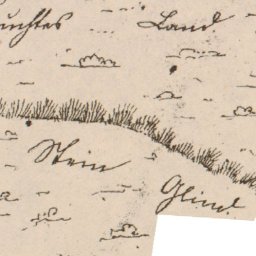 uchtes Land
Stein
Glind.